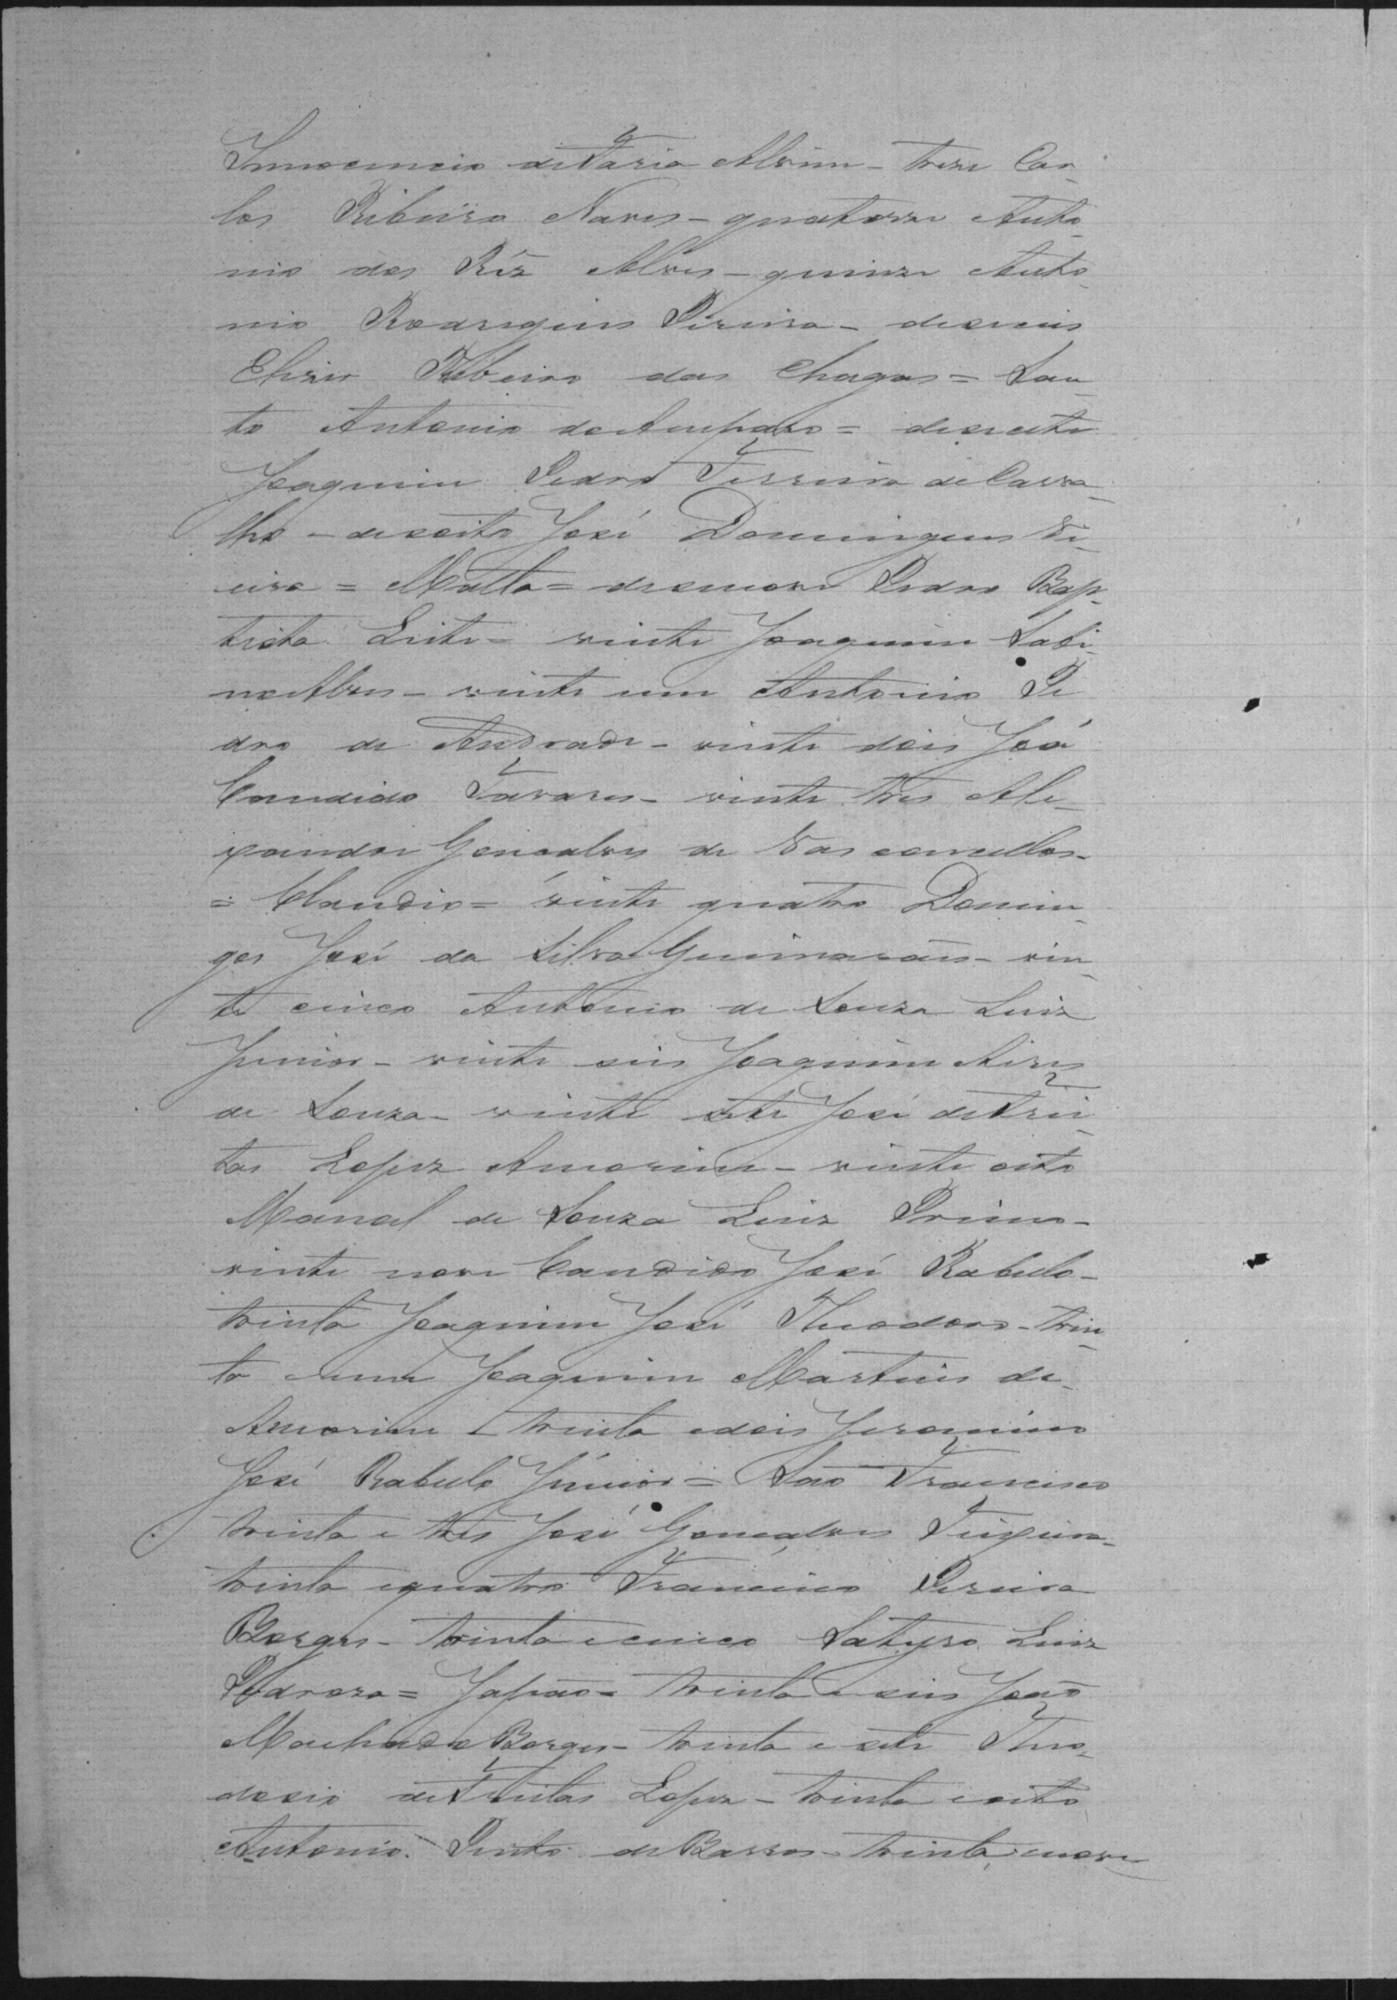 Innocencio de Faria Alvim - treze Car-
los Ribeiro Naves - quatorze Anto-
nio dos Reis Alves - quinze Anto-
nio Rodrigues Pereira - deseseis
Elizeu Ribeiro das Chagas = San-
to Antonio do Amparo = desesete
Joaquim Pedro Ferreira de Carva-
lho - desoito José Domingues Vi-
eira = Matta = desenove Pedro Bap-
tista Leite - vinte Joaquim Sabi-
no Alves - vinte um Antonio Pe
dro de Andrade - vinte dois José
Candido Tavares - vinte tres Ale-
xandre Gonsalves de Vasconcellos -
= Claudio = vinte quatro Domin-
gos José da Silva Guimarães - vin-
te cinco Antonio de Souza Luiz
Junior - vinte seis Joaquim Aires
de Souza - vinte sete José de Frei-
tas Lopes Amorim - vinte oito
Manoel de Souza Luiz Primo -
vinte nove Candido José Rabelo -
trinta Joaquim José Theodoro - trin-
ta e um Joaquim Martins de
Amorim - trinta e dois Jeronimo
José Rabelo Júnior = São Francisco
trinta e tres José Gonçalves Teixeira -
trinta e quatro Francisco Pereira
Borges - trinta e cinco Satyro Luiz
Pedroza = Japão = trinta e seis João
Machado Borges - trinta e sete Theo-
dosio de Freitas Lopes - trinta e oito
Antonio Pinto de Barros - trinta e nove